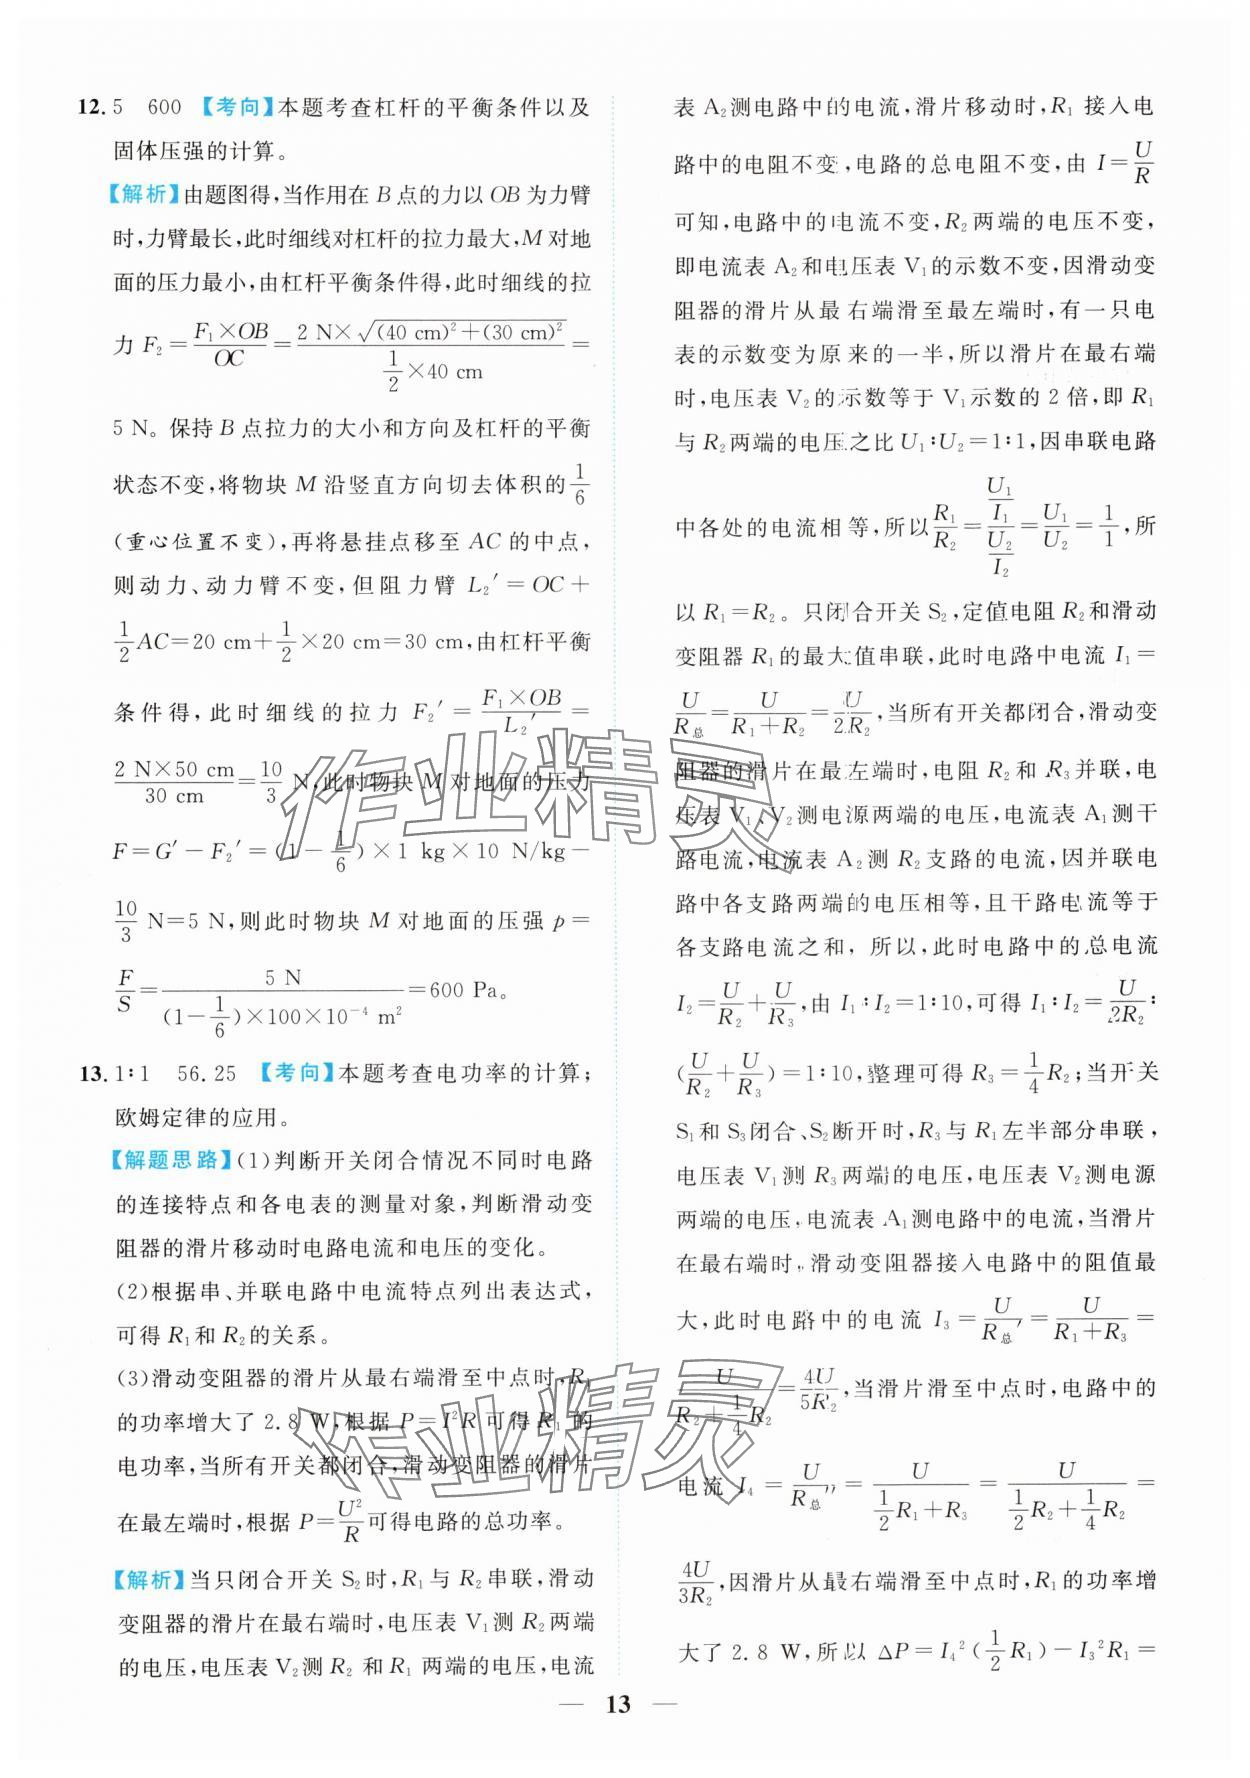 12. 5　600 【考向】本题考查杠杆的平衡条件以及
固体压强的计算。
【解析】由题图得,当作用在 B 点的力以 OB 为力臂
时,力臂最长,此时细线对杠杆的拉力最大,M 对地
面的压力最小,由杠杆平衡条件得,此时细线的拉
力 F₂ = (F₁×OB)/OC = (2 N×√((40 cm)²+(30 cm)²))/(1/2×40 cm) =
5 N。保持 B 点拉力的大小和方向及杠杆的平衡
状态不变,将物块 M 沿竖直方向切去体积的 1/6
(重心位置不变),再将悬挂点移至 AC 的中点,
则动力、动力臂不变,但阻力臂 L₂′ = OC +
1/2 AC=20 cm+1/2×20 cm=30 cm,由杠杆平衡
条件得,此时细线的拉力 F₂′ = (F₁×OB)/L₂′ =
(2 N×50 cm)/(30 cm) = 10/3 N,此时物块 M 对地面的压力
F = G′ − F₂′ = (1−1/6)×1 kg×10 N/kg −
10/3 N=5 N,则此时物块 M 对地面的压强 p =
F/S = 5 N/((1−1/6)×100×10⁻⁴ m²) =600 Pa。
13. 1∶1　56.25 【考向】本题考查电功率的计算;
欧姆定律的应用。
【解题思路】(1)判断开关闭合情况不同时电路
的连接特点和各电表的测量对象,判断滑动变
阻器的滑片移动时电路电流和电压的变化。
(2)根据串、并联电路中电流特点列出表达式,
可得 R₁和 R₂的关系。
(3)滑动变阻器的滑片从最右端滑至中点时,R₁
的功率增大了 2.8 W,根据 P=I²R 可得 R₁ 的
电功率,当所有开关都闭合,滑动变阻器的滑片
在最左端时,根据 P=U²/R 可得电路的总功率。
【解析】当只闭合开关 S₂时,R₁与 R₂串联,滑动
变阻器的滑片在最右端时,电压表 V₁测 R₂两端
的电压,电压表 V₂测 R₂ 和 R₁ 两端的电压,电流
表 A₂测电路中的电流,滑片移动时,R₁ 接入电
路中的电阻不变,电路的总电阻不变,由 I=U/R
可知,电路中的电流不变,R₂两端的电压不变,
即电流表 A₂和电压表 V₁的示数不变,因滑动变
阻器的滑片从最右端滑至最左端时,有一只电
表的示数变为原来的一半,所以滑片在最右端
时,电压表 V₂的示数等于 V₁示数的 2 倍,即 R₁
与 R₂两端的电压之比 U₁∶U₂=1∶1,因串联电路
中各处的电流相等,所以 R₁/R₂ = (U₁/I₁)/(U₂/I₂) = U₁/U₂ = 1/1,所
以 R₁=R₂。只闭合开关 S₂,定值电阻 R₂和滑动
变阻器 R₁的最大值串联,此时电路中电流 I₁=
U/R总 = U/(R₁+R₂) = U/2R₂,当所有开关都闭合,滑动变
阻器的滑片在最左端时,电阻 R₂和 R₃并联,电
压表 V₁、V₂测电源两端的电压,电流表 A₁测干
路电流,电流表 A₂测 R₂支路的电流,因并联电
路中各支路两端的电压相等,且干路电流等于
各支路电流之和,所以,此时电路中的总电流
I₂ = U/R₂ + U/R₃,由 I₁∶I₂=1∶10,可得 I₁∶I₂ = U/2R₂∶
(U/R₂ + U/R₃)=1∶10,整理可得 R₃ = 1/4 R₂;当开关
S₁和 S₃闭合、S₂断开时,R₃与 R₁左半部分串联,
电压表 V₁测 R₃两端的电压,电压表 V₂测电源
两端的电压,电流表 A₁测电路中的电流,当滑片
在最右端时,滑动变阻器接入电路中的阻值最
大,此时电路中的电流 I₃ = U/R总′ = U/(R₁+R₃) =
U/(R₂+1/4 R₂) = 4U/5R₂,当滑片滑至中点时,电路中的
电流 I₄ = U/R总″ = U/(1/2 R₁+R₃) = U/(1/2 R₂+1/4 R₂) =
4U/3R₂,因滑片从最右端滑至中点时,R₁的功率增
大了 2.8 W,所以 △P = I₄²(1/2 R₁) − I₃²R₁ =
— 13 —
作业精灵
作业精灵